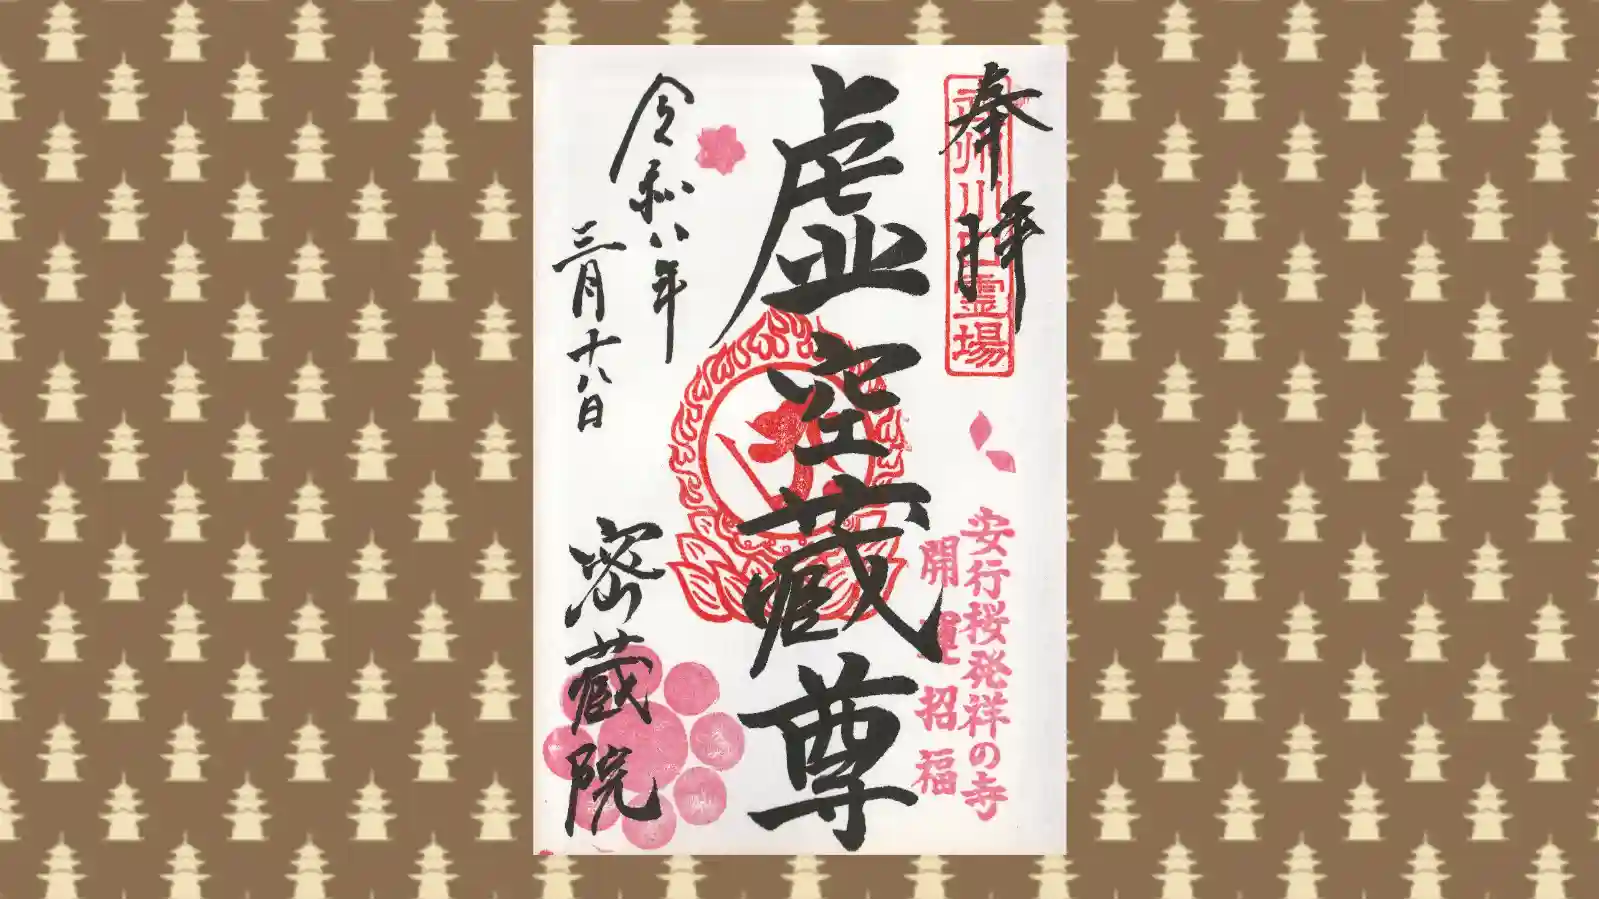 奉拝
武州川口霊場
安行桜発祥の寺
開運招福
虚空蔵尊
令和八年
三月十八日
密蔵院